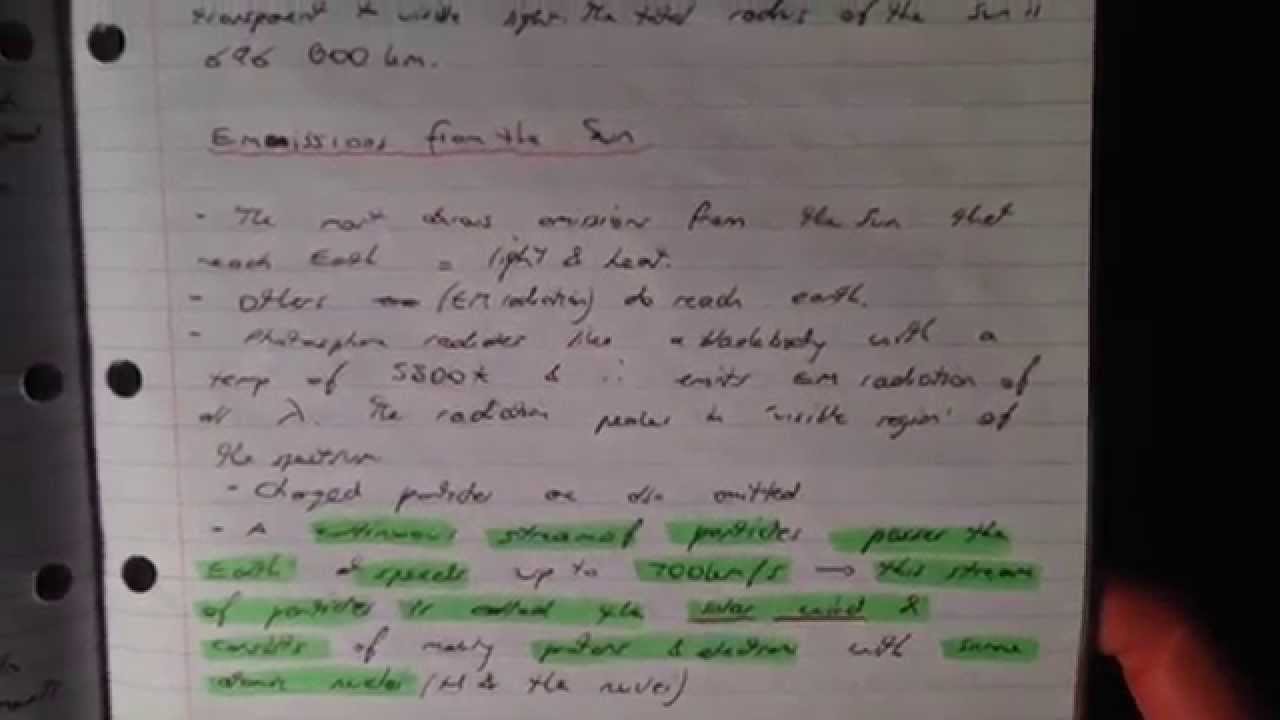 transparent to visible light. The total radius of the Sun is
696 000 km.
Emmissions from the Sun
- The most obvious emissions from the Sun that
reach Earth = light & heat.
- Others (EM radiation) do reach earth.
- Photosphere radiates like a blackbody with a
temp of 5800K & ∴ emits EM radiation of
all λ. The radiation peaks in 'visible region' of
the spectrum
- Charged particles are also emitted
- A continuous stream of particles passes the
Earth at speeds up to 700km/s → this stream
of particles is called the solar wind &
consists of mainly protons & electrons with some
atomic nuclei (H & He nuclei)